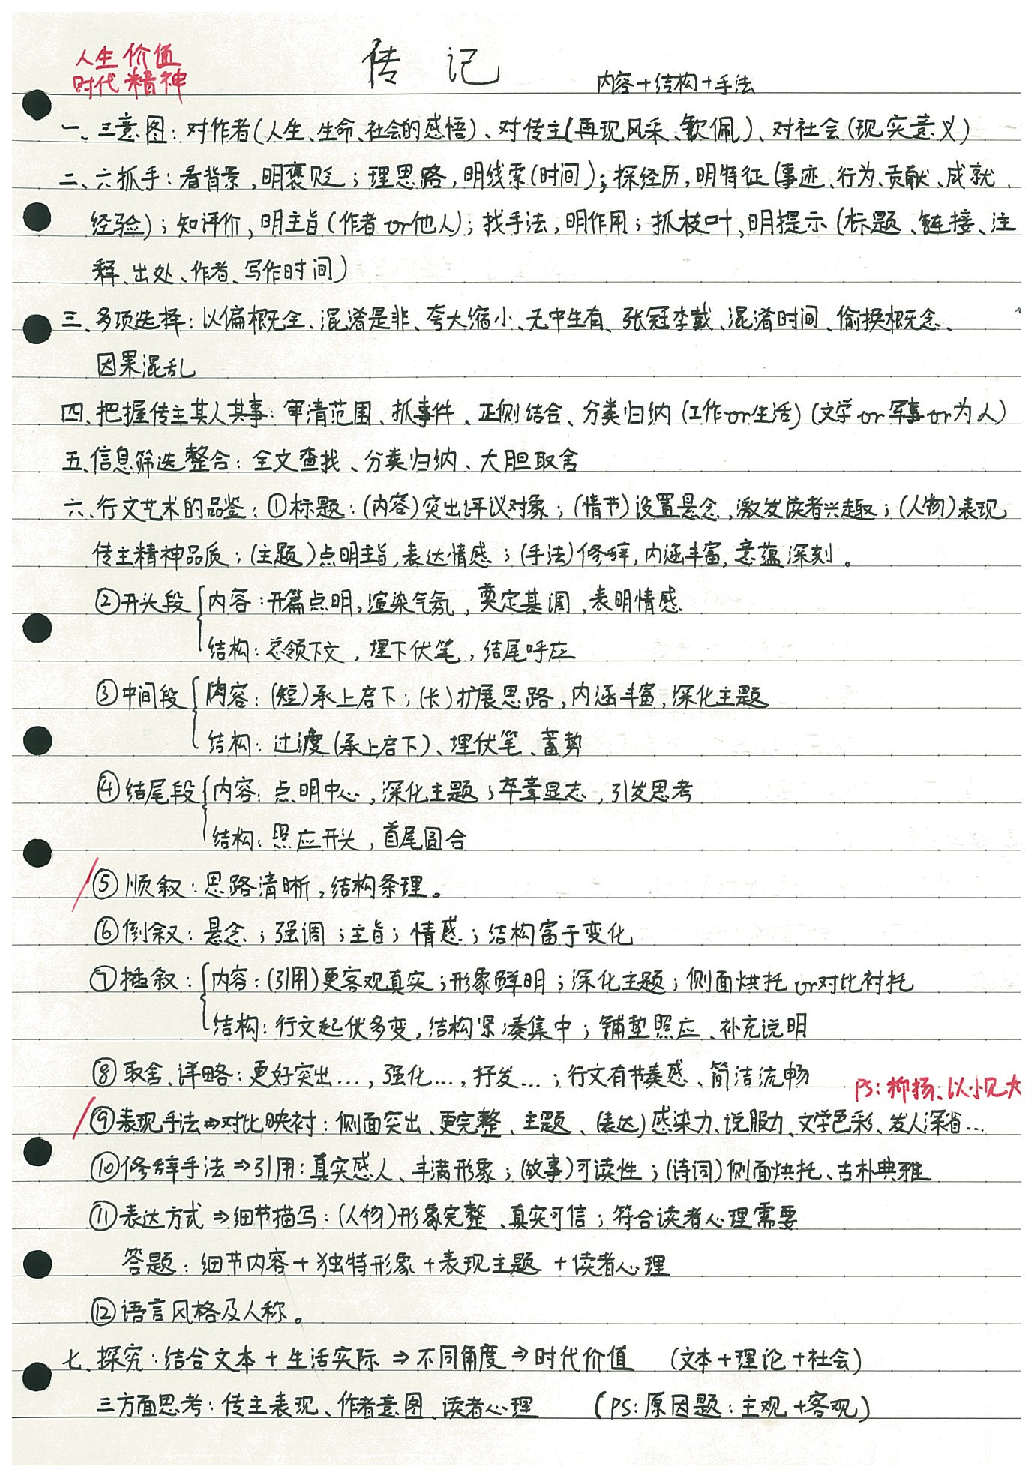 人生价值
时代精神
传记
内容+结构+手法
一、三意图：对作者(人生、生命、社会的感悟)、对传主(再现风采、钦佩)、对社会(现实意义)
二、六抓手：看背景,明褒贬；理思路,明线索(时间)；探经历,明特征(事迹、行为、贡献、成就、
经验)；知评价,明主旨(作者or他人)；找手法,明作用；抓枝叶,明提示(标题、链接、注
释、出处、作者、写作时间)
三、多项选择：以偏概全、混淆是非、夸大缩小、无中生有、张冠李戴、混淆时间、偷换概念、
因果混乱
四、把握传主其人其事：审清范围、抓事件、正侧结合、分类归纳(工作or生活)(文学or军事or为人)
五、信息筛选整合：全文查找、分类归纳、大胆取舍
六、行文艺术的品鉴：①标题：(内容)突出评议对象；(情节)设置悬念,激发读者兴趣；(人物)表现
传主精神品质；(主题)点明主旨,表达情感；(手法)修辞,内涵丰富,意蕴深刻。
②开头段 内容：开篇点明,渲染气氛,奠定基调,表明情感
结构：总领下文,埋下伏笔,结尾呼应
③中间段 内容：(短)承上启下；(长)扩展思路,内涵丰富,深化主题
结构：过渡(承上启下)、埋伏笔、蓄势
④结尾段 内容：点明中心,深化主题；卒章显志,引发思考
结构：照应开头,首尾圆合
⑤顺叙：思路清晰,结构条理。
⑥倒叙：悬念；强调；主旨；情感；结构富于变化
⑦插叙：内容：(引用)更客观真实；形象鲜明；深化主题；侧面烘托or对比衬托
结构：行文起伏多变,结构紧凑集中；铺垫照应、补充说明
⑧取舍、详略：更好突出…,强化…,抒发…；行文有节奏感、简洁流畅
PS：抑扬、以小见大
⑨表现手法⇒对比映衬：侧面突出、更完整、主题、(表达)感染力、说服力、文学色彩、发人深省…
⑩修辞手法⇒引用：真实感人、丰满形象；(故事)可读性；(诗词)侧面烘托、古朴典雅
⑪表达方式⇒细节描写：(人物)形象完整、真实可信；符合读者心理需要
答题：细节内容+独特形象+表现主题+读者心理
⑫语言风格及人称。
七、探究：结合文本+生活实际⇒不同角度⇒时代价值 (文本+理论+社会)
三方面思考：传主表现、作者意图、读者心理 (PS：原因题：主观+客观)